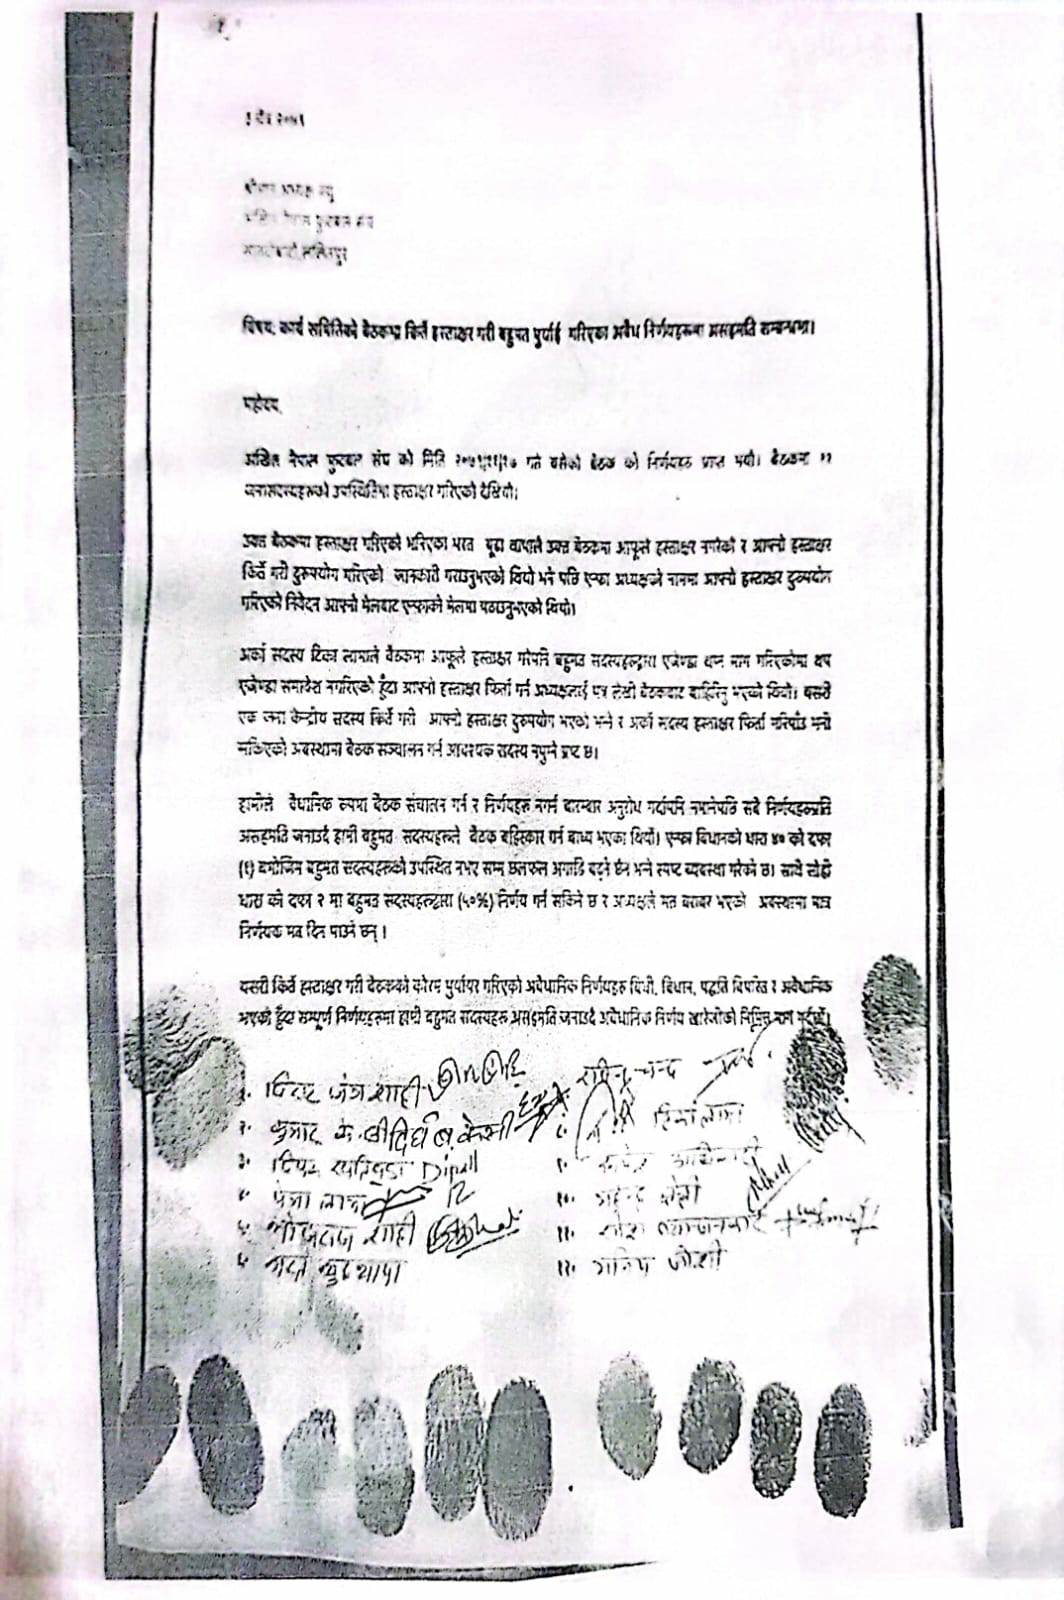 ३ चैत्र २०७९
श्रीमान अध्यक्ष ज्यू
अखिल नेपाल फुटबल संघ
सातदोबाटो, ललितपुर
विषय: कार्य समितिको बैठकमा किर्ते हस्ताक्षर गरी बहुमत पुर्याई गरिएका अवैध निर्णयहरूमा असहमति सम्बन्धमा।
महोदय,
अखिल नेपाल फुटबल संघ को मिति गते बसेको बैठक को निर्णयहरु प्राप्त भयो। बैठकमा ११
जनासदस्यहरूको उपस्थितिमा हस्ताक्षर गरिएको देखियो।
उक्त बैठकमा हस्ताक्षर गरिएको भनिएका भरत बूढा थापाले उक्त बैठकमा आफूले हस्ताक्षर नगरेको र आफ्नो हस्ताक्षर
किर्ते गरी दुरुपयोग गरिएको जानकारी गराउनुभएको थियो भने पछि एन्फा अध्यक्षको नाममा आफ्नो हस्ताक्षर दुरुपयोग
गरिएको निवेदन आफ्नो मेलबाट एन्फाको मेलमा पठाउनुभएको थियो।
अर्का सदस्य टिका लामाले बैठकमा आफूले हस्ताक्षर गरेपनि बहुमत सदस्यहरूद्वारा एजेण्डा थप्न माग गरिएकोमा थप
एजेण्डा समावेश नगरिएको हुँदा आफ्नो हस्ताक्षर फिर्ता गर्न अध्यक्षलाई पत्र लेखी बैठकबाट बाहिरिनु भएको थियो। यसरी
एक जना केन्द्रीय सदस्य किर्ते गरी आफ्नो हस्ताक्षर दुरुपयोग भएको भन्ने र अर्का सदस्य हस्ताक्षर फिर्ता गरिपाँउ भनी
सकिएको अवस्थामा बैठक सञ्चालन गर्न आवश्यक सदस्य नपुग्ने प्रष्ट छ।
हामीले वैधानिक रुपमा बैठक संचालन गर्न र निर्णयहरु नगर्न बारम्बार अनुरोध गर्दापनि नमानेपछि सबै निर्णयहरूप्रति
असहमति जनाउदै हामी बहुमत सदस्यहरूले बैठक बहिस्कार गर्न बाध्य भएका थियौं। एन्फा विधानको धारा ४० को दफा
(१) बमोजिम बहुमत सदस्यहरूको उपस्थित नभए सम्म छलफल अगाडि बढ्ने छैन भन्ने स्पष्ट व्यवस्था गरेको छ। साथै सोही
धारा को दफा २ मा बहुमत सदस्यहरूद्वारा (५०%) निर्णय गर्न सकिने छ र अध्यक्षले मत बराबर भएको अवस्थामा मात्र
निर्णायक मत दिन पाउने छन्।
यसरी किर्ते हस्ताक्षर गरी बैठकको कोरम पुर्याएर गरिएको अवैधानिक निर्णयहरु विधी, विधान, पद्धति विपरित र अवैधानिक
भएको हुँदा सम्पूर्ण निर्णयहरूमा हामी बहुमत सदस्यहरू असहमति जनाउदै अवैधानिक निर्णय खारेजीको निम्ति माग गर्दछौं।
१. जंग शाही
चन्द
२. के.सी
टिका लामा
३. Dipak
४. पेमा लामा
१०. महेन्द्र क्षेत्री
५. शाही
६. भरत बुढाथापा
१२. जोशी